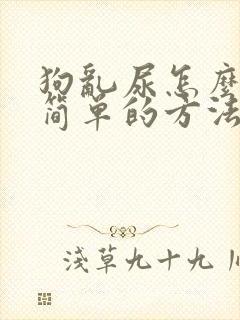 狗亂尿怎麼
簡單的方法
淺草九十九